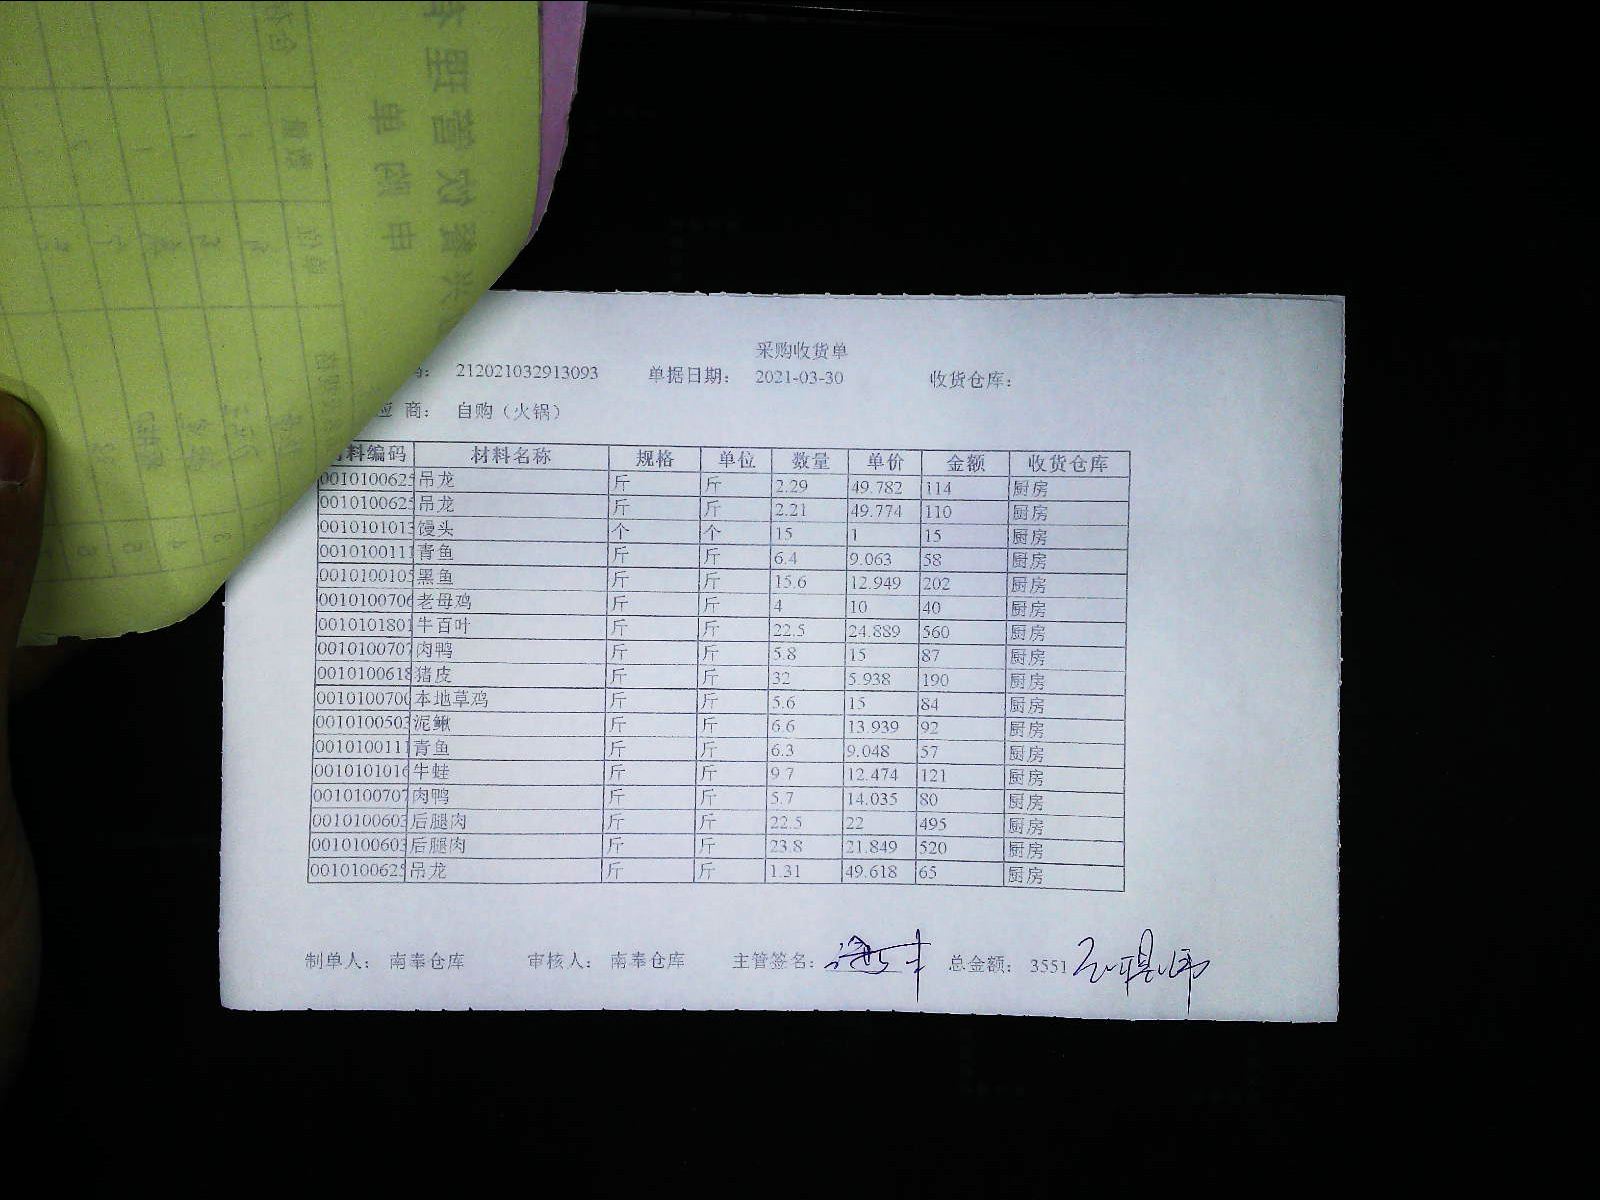 采购收货单
212021032913093 单据日期： 2021-03-30 收货仓库：
应 商： 自购（火锅）
料编码 材料名称 规格 单位 数量 单价 金额 收货仓库
0010100625 吊龙 斤 斤 2.29 49.782 114 厨房
0010100625 吊龙 斤 斤 2.21 49.774 110 厨房
0010101013 馒头 个 个 15 1 15 厨房
0010100111 青鱼 斤 斤 6.4 9.063 58 厨房
0010100105 黑鱼 斤 斤 15.6 12.949 202 厨房
0010100706 老母鸡 斤 斤 4 10 40 厨房
0010101801 牛百叶 斤 斤 22.5 24.889 560 厨房
0010100707 肉鸭 斤 斤 5.8 15 87 厨房
0010100618 猪皮 斤 斤 32 5.938 190 厨房
0010100700 本地草鸡 斤 斤 5.6 15 84 厨房
0010100503 泥鳅 斤 斤 6.6 13.939 92 厨房
0010100111 青鱼 斤 斤 6.3 9.048 57 厨房
0010101016 牛蛙 斤 斤 9.7 12.474 121 厨房
0010100707 肉鸭 斤 斤 5.7 14.035 80 厨房
0010100603 后腿肉 斤 斤 22.5 22 495 厨房
0010100603 后腿肉 斤 斤 23.8 21.849 520 厨房
0010100625 吊龙 斤 斤 1.31 49.618 65 厨房
制单人： 南奉仓库 审核人： 南奉仓库 主管签名： 总金额： 3551